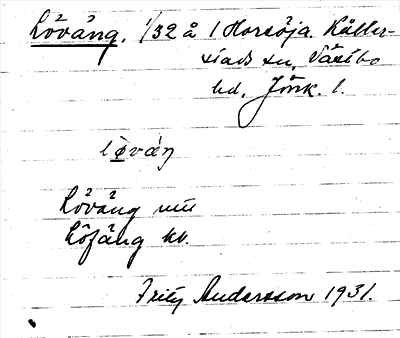 Löväng. 1/32 å 1 Horsöja. Kåller-
stads sn, Västbo
hd, Jönk. l.
löväŋ
Löväng
Löfäng kb.
Fritz Andersson 1931.